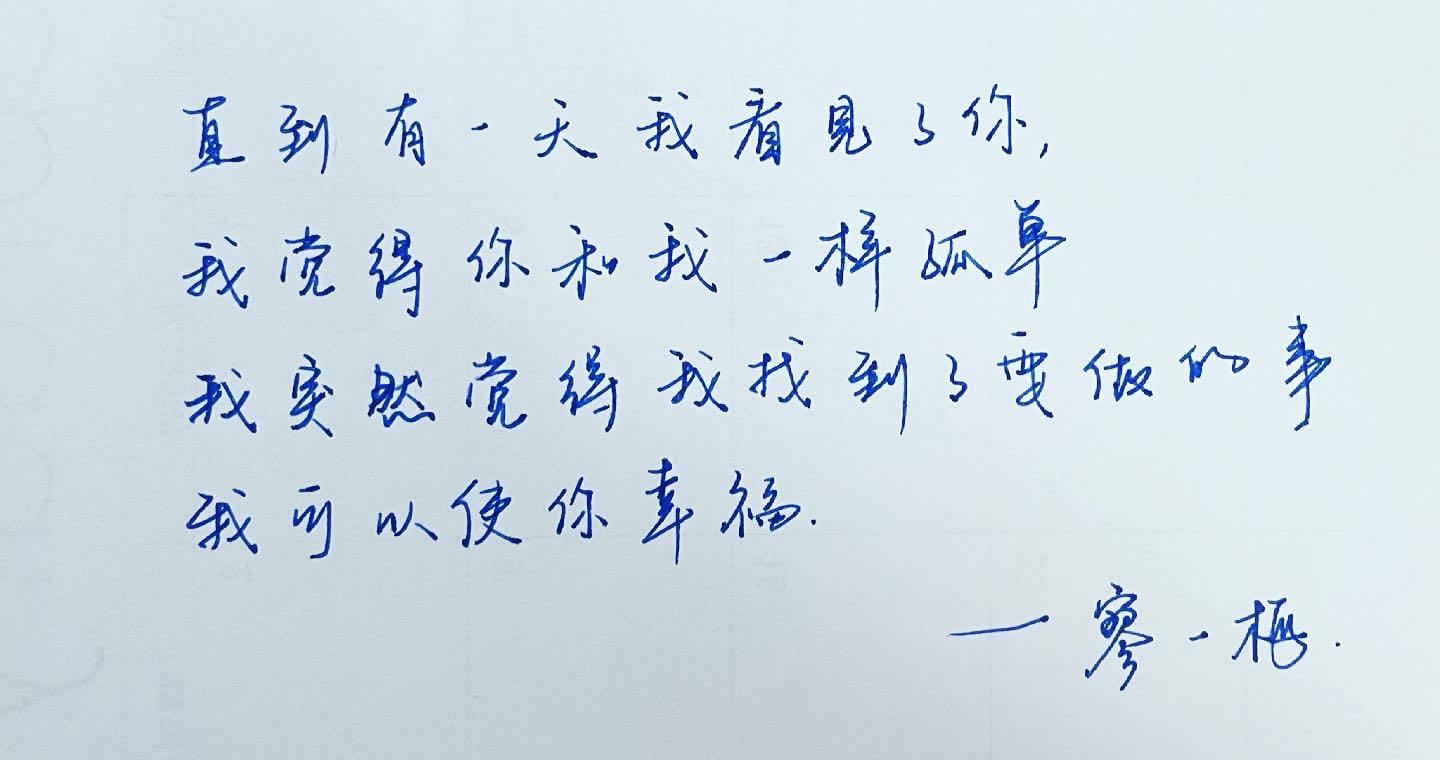 直到有一天我看见了你,
我觉得你和我一样孤单
我突然觉得我找到了要做的事
我可以使你幸福.
——廖一梅.